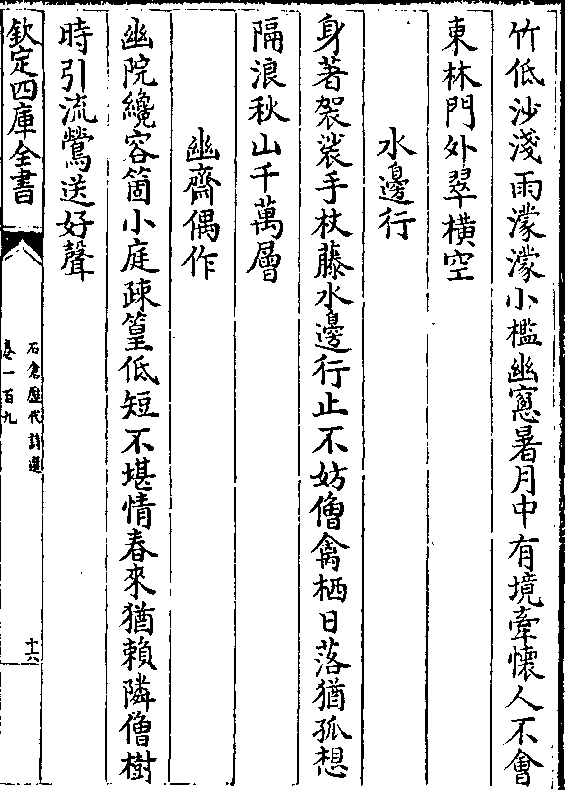 竹低沙淺雨濛濛小檻幽窻暑月中有境牽懷人不會
東林門外翠橫空
水邊行
身著袈裟手杖藤水邊行止不妨僧禽栖日落猶孤想
隔浪秋山千萬層
幽齋偶作
幽院纔容箇小庭疎篁低短不堪情春來猶賴隣僧樹
時引流鶯送好聲
欽定四庫全書
石倉歷代詩選
卷一百九
十六